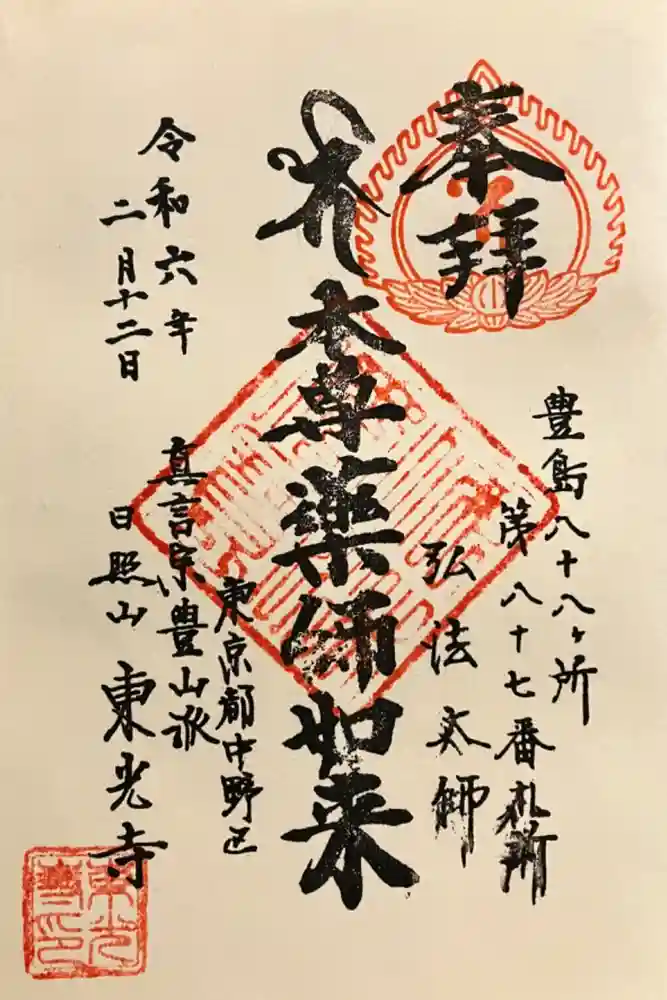 奉拝
豊島八十八ヶ所
第八十七番札所
弘法大師
本尊薬師如来
東京都中野区
真言宗豊山派
日照山 東光寺
令和六年
二月十二日